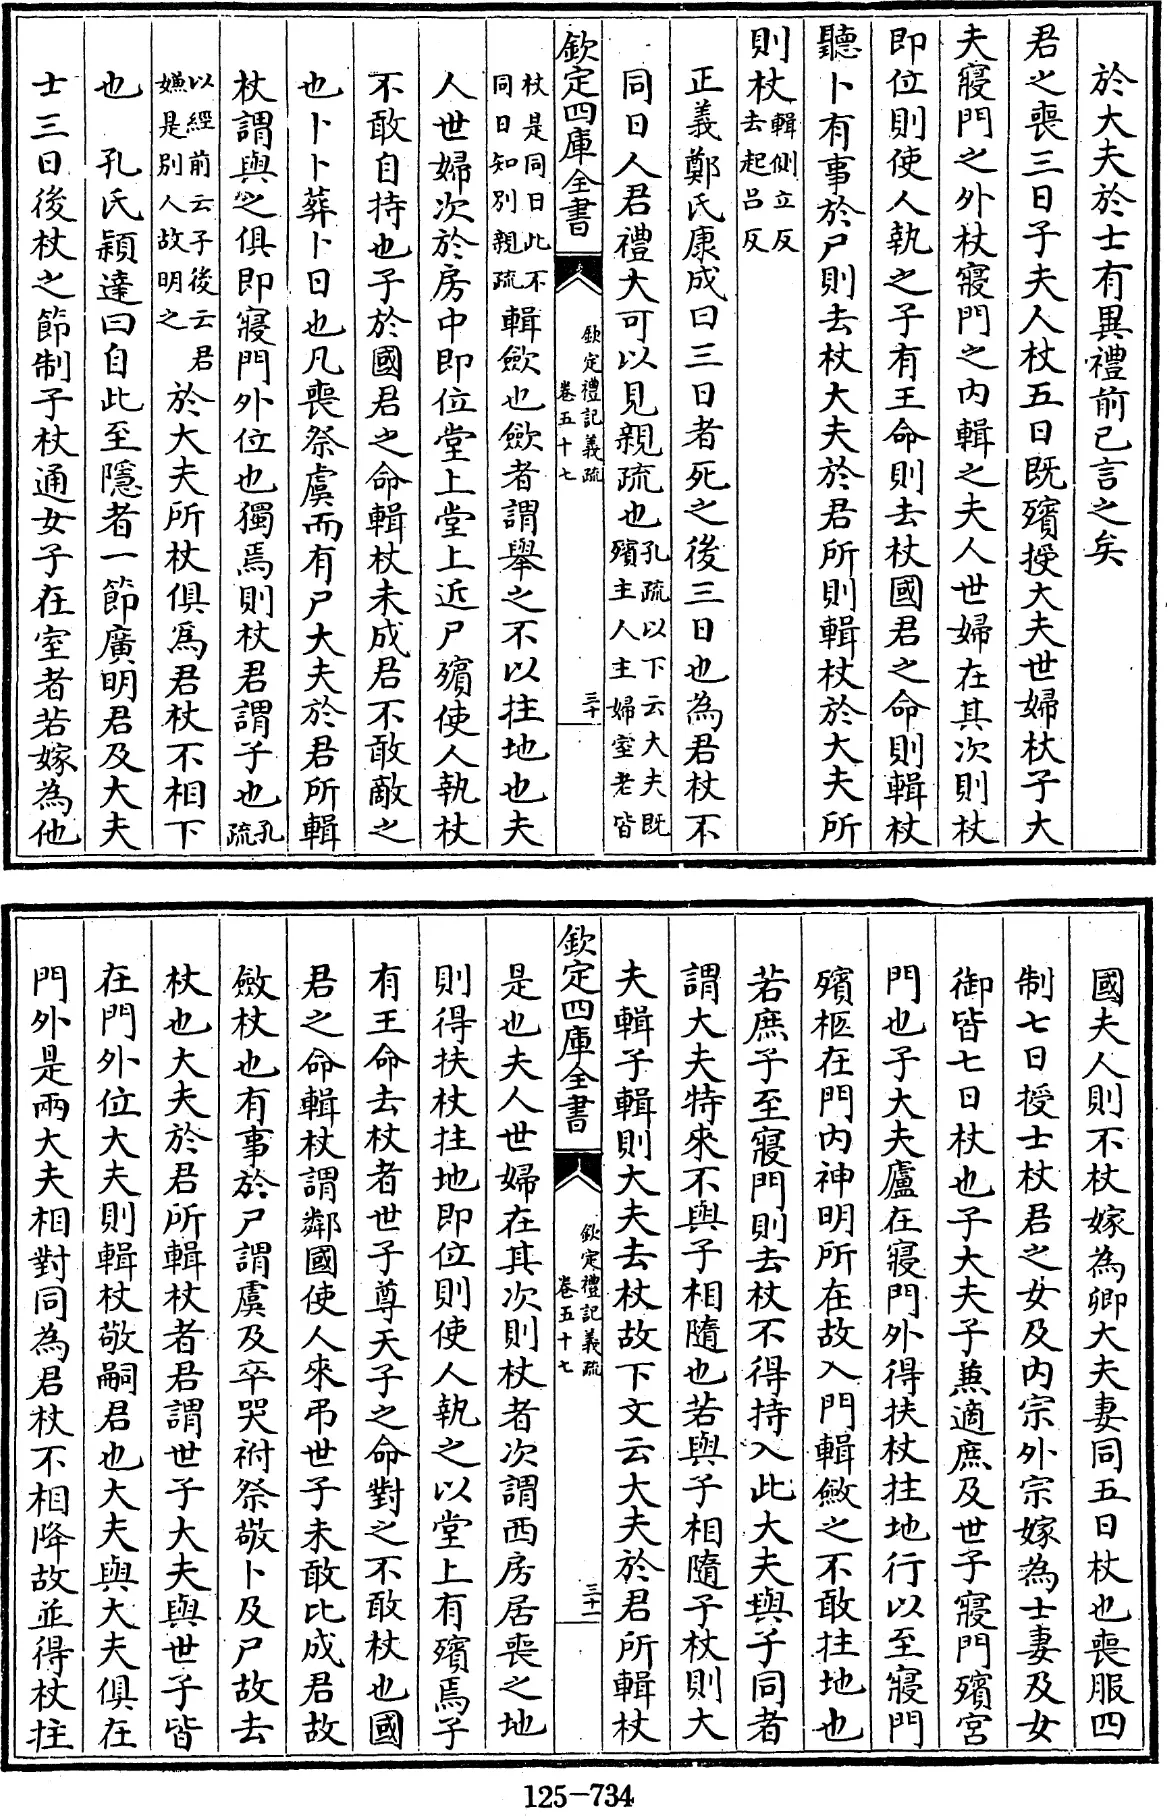 於大夫於士有異禮前已言之矣
君之喪三日子夫人杖五日既殯授大夫世婦杖子大
夫寢門之外杖寢門之内輯之夫人世婦在其次則杖
即位則使人執之子有王命則去杖國君之命則輯杖
聽卜有事於尸則去杖大夫於君所則輯杖於大夫所
則杖輯側立反
去起吕反
正義鄭氏康成曰三日者死之後三日也為君杖不
同日人君禮大可以見親疏也孔疏以下云大夫既
殯主人主婦室老皆
欽定四庫全書
欽定禮記義疏
卷五十七
三十
杖是同日此不
同日知别親疏輯歛也歛者謂舉之不以拄地也夫
人世婦次於房中即位堂上堂上近尸殯使人執杖
不敢自持也子於國君之命輯杖未成君不敢敵之
也卜卜葬卜日也凡喪祭虞而有尸大夫於君所輯
杖謂與之俱即寢門外位也獨焉則杖君謂子也孔
疏
以經前云子後云君
嫌是别人故明之於大夫所杖俱為君杖不相下
也 孔氏穎達曰自此至隱者一節廣明君及大夫
士三日後杖之節制子杖通女子在室者若嫁為他
國夫人則不杖嫁為卿大夫妻同五日杖也喪服四
制七日授士杖君之女及内宗外宗嫁為士妻及女
御皆七日杖也子大夫子兼適庶及世子寢門殯宮
門也子大夫廬在寢門外得扶杖拄地行以至寢門
殯柩在門内神明所在故入門輯斂之不敢拄地也
若庶子至寢門則去杖不得持入此大夫與子同者
謂大夫特來不與子相隨也若與子相隨子杖則大
夫輯子輯則大夫去杖故下文云大夫於君所輯杖
欽定四庫全書
欽定禮記義疏
卷五十七
三十一
是也夫人世婦在其次則杖者次謂西房居喪之地
則得扶杖拄地即位則使人執之以堂上有殯焉子
有王命去杖者世子尊天子之命對之不敢杖也國
君之命輯杖謂鄰國使人來弔世子未敢比成君故
斂杖也有事於尸謂虞及卒哭祔祭敬卜及尸故去
杖也大夫於君所輯杖者君謂世子大夫與世子皆
在門外位大夫則輯杖敬嗣君也大夫與大夫俱在
門外是兩大夫相對同為君杖不相降故並得杖拄
125-734